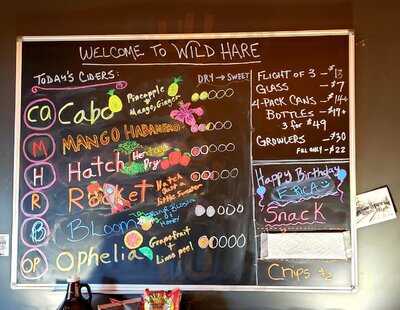 WELCOME TO WILD HARE
TODAY'S CIDERS:
DRY → SWEET
CA Cabo Pineapple + Mango, Ginger
M MANGO HABANERO
H Hatch Heritage Dry
R Rocket Hatch but a little sweeter
B Bloom
OP Ophelia Grapefruit + Lime peel
FLIGHT OF 3 - $13
GLASS - $7
4-PACK CANS - $14+
BOTTLES - $17+
3 for $49
GROWLERS - $30
FILL ONLY - $22
Happy Birthday
ERICA
Snack
Chips $2